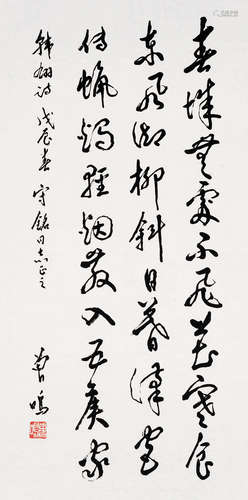 春城無處不飛花寒食
東風御柳斜日暮漢宮
傳蠟燭輕烟散入五侯家
韓翃詩 戊辰春 守銘同志正之
鳴